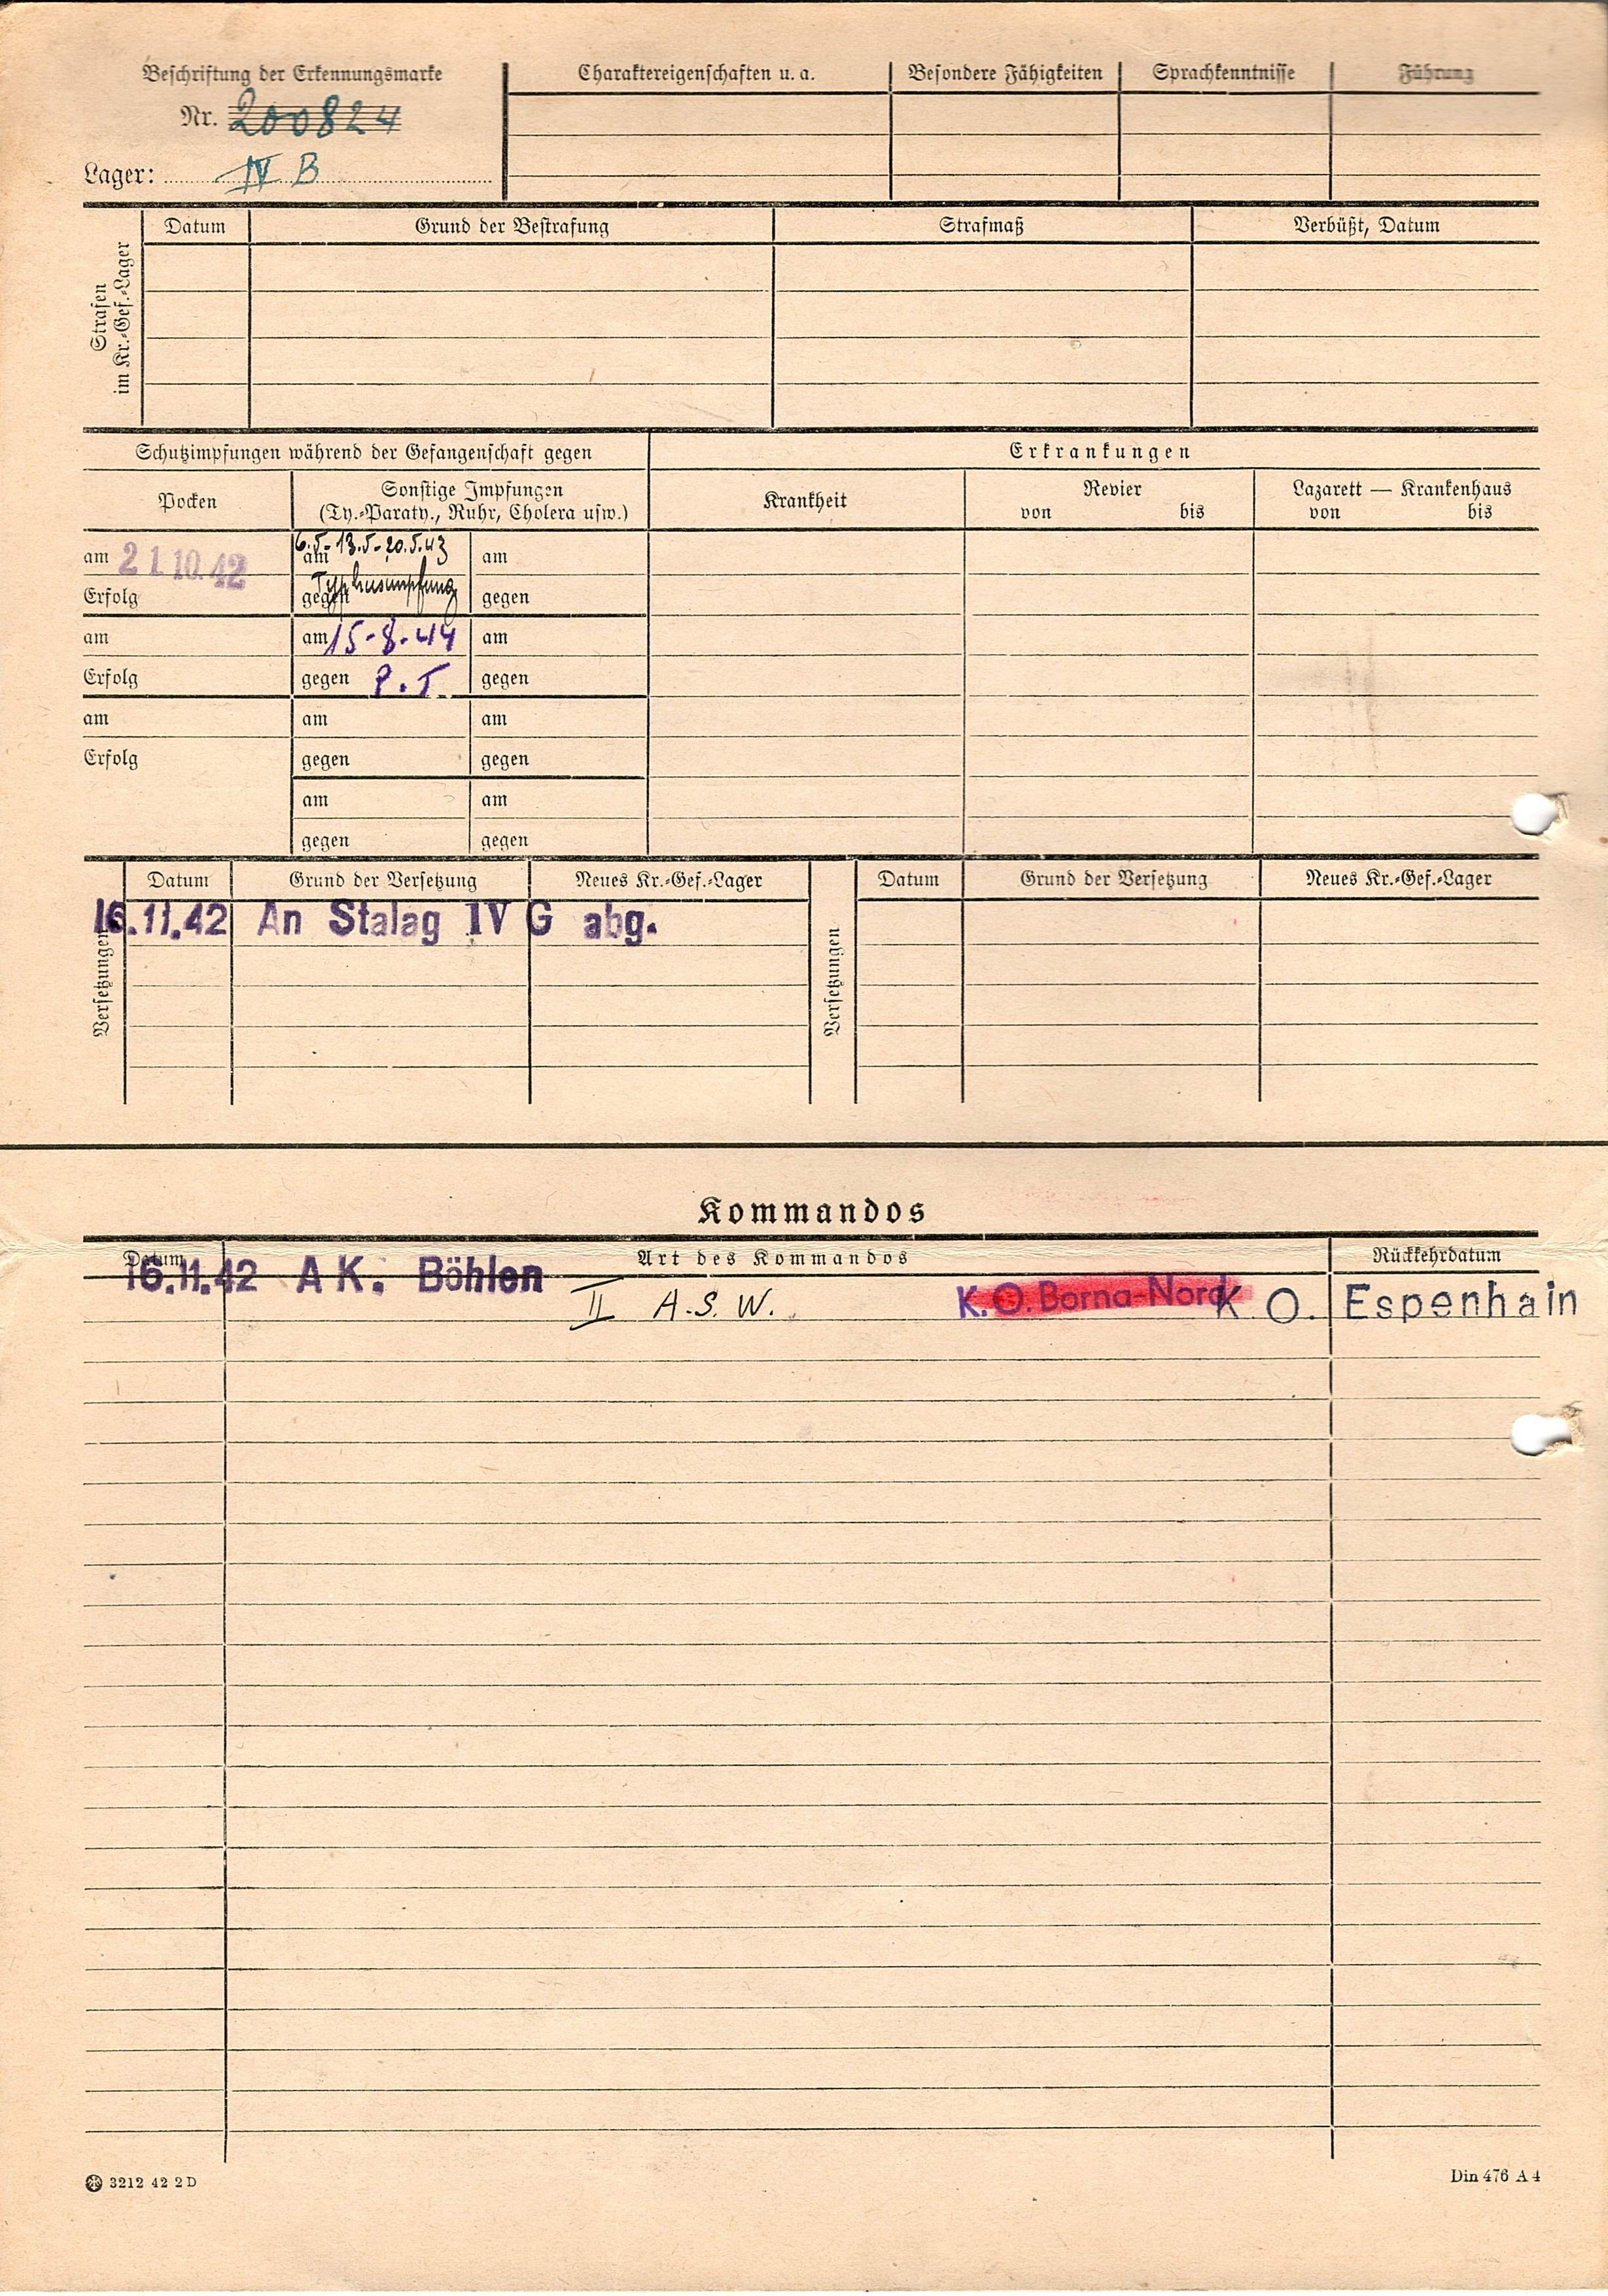 Beschriftung der Erkennungsmarke
Nr. 200824
Lager: IV B
Charaktereigenschaften u. a.
Besondere Fähigkeiten
Sprachkenntnisse
Führung
Strafen
im Kr.=Gef.=Lager
Datum
Grund der Bestrafung
Strafmaß
Verbüßt, Datum
Schutzimpfungen während der Gefangenschaft gegen
Erkrankungen
Pocken
Sonstige Impfungen
(Ty.=Paraty., Ruhr, Cholera usw.)
Krankheit
Revier
von bis
Lazarett — Krankenhaus
von bis
am 21.10.42
Erfolg
am 6.5-13.5-20.5.43
gegen Typhusimpfung
am
gegen
am
Erfolg
am 15-8-44
gegen P.T.
am
gegen
am
Erfolg
am
gegen
am
gegen
am
gegen
am
gegen
Versetzungen
Datum
Grund der Versetzung
Neues Kr.=Gef.=Lager
16.11.42 An Stalag IV G abg.
Versetzungen
Datum
Grund der Versetzung
Neues Kr.=Gef.=Lager
Kommandos
Datum
Art des Kommandos
Rückkehrdatum
16.11.42 AK. Böhlen
II A.S.W.
K.O. Borna-Nord
K O. Espenhain
3212 42 2 D
Din 476 A 4